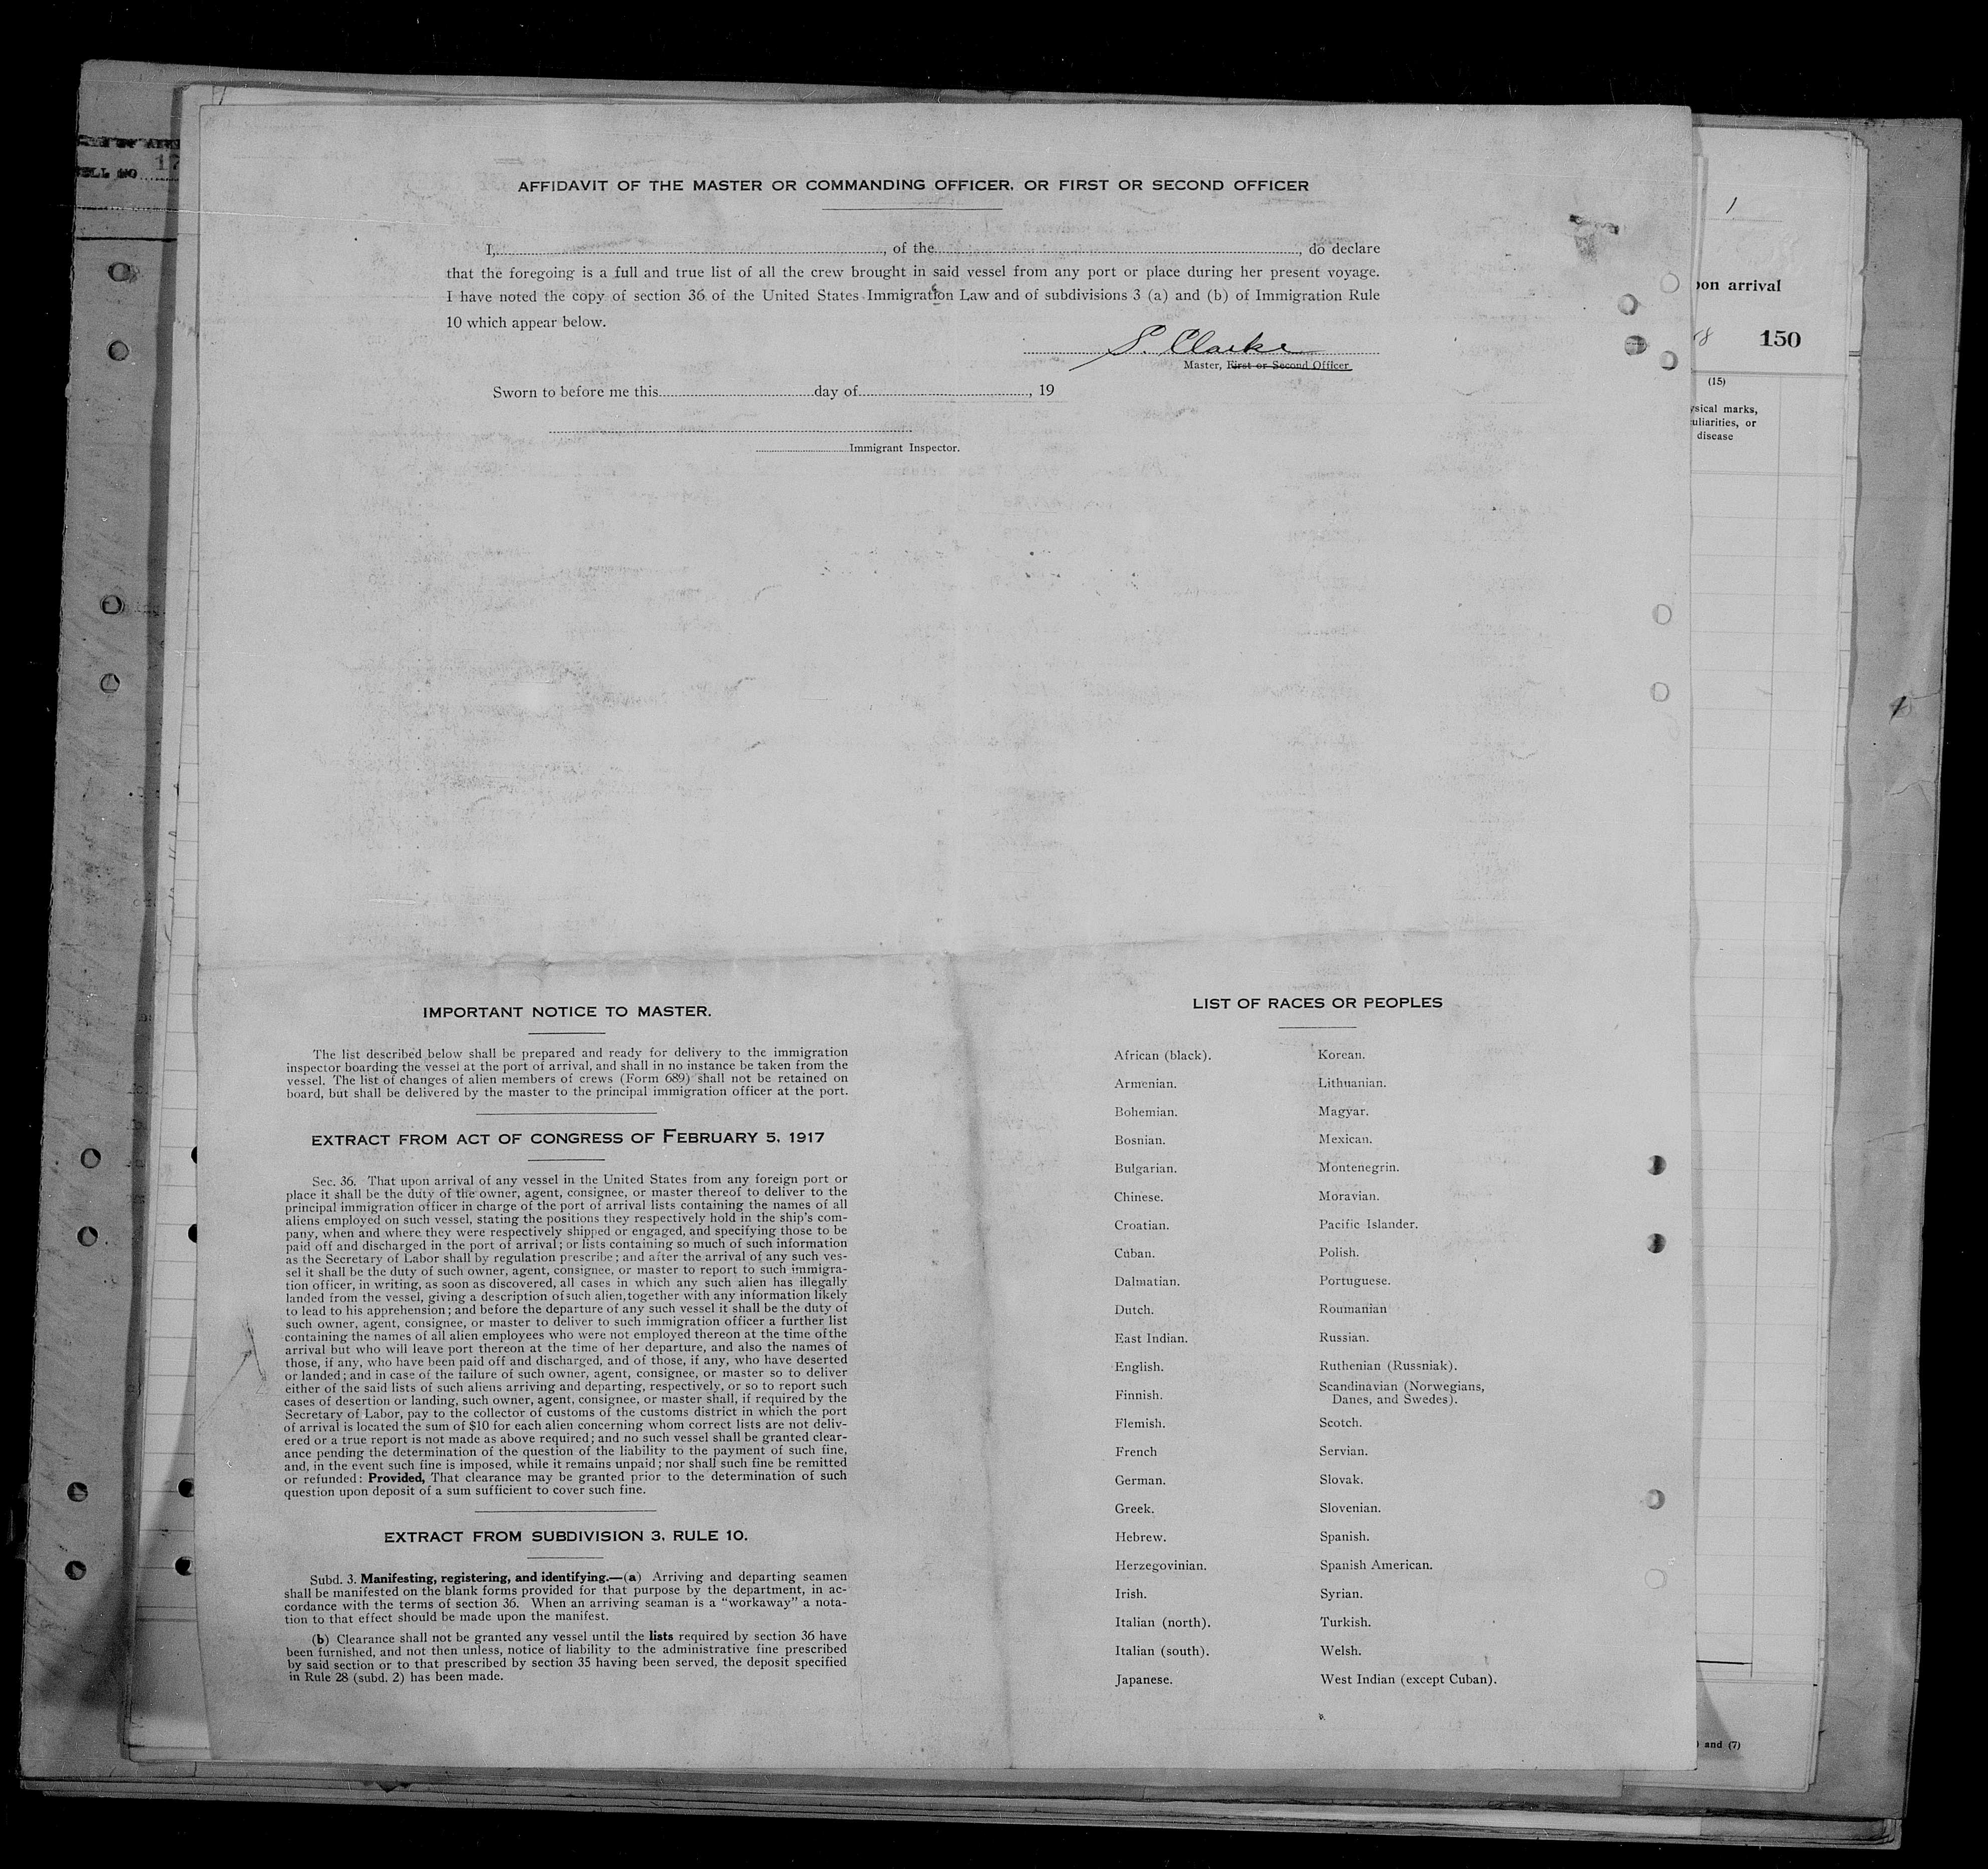 AFFIDAVIT OF THE MASTER OR COMMANDING OFFICER, OR FIRST OR SECOND OFFICER
I,, of the, do declare
that the foregoing is a full and true list of all the crew brought in said vessel from any port or place during her present voyage.
I have noted the copy of section 36 of the United States Immigration Law and of subdivisions 3 (a) and (b) of Immigration Rule
10 which appear below.
S. Clarke
Master, First or Second Officer
Sworn to before me this day of, 19
Immigrant Inspector.
IMPORTANT NOTICE TO MASTER.
The list described below shall be prepared and ready for delivery to the immigration
inspector boarding the vessel at the port of arrival, and shall in no instance be taken from the
vessel. The list of changes of alien members of crews (Form 689) shall not be retained on
board, but shall be delivered by the master to the principal immigration officer at the port.
EXTRACT FROM ACT OF CONGRESS OF FEBRUARY 5, 1917
Sec. 36. That upon arrival of any vessel in the United States from any foreign port or
place it shall be the duty of the owner, agent, consignee, or master thereof to deliver to the
principal immigration officer in charge of the port of arrival lists containing the names of all
aliens employed on such vessel, stating the positions they respectively hold in the ship's com-
pany, when and where they were respectively shipped or engaged, and specifying those to be
paid off and discharged in the port of arrival; or lists containing so much of such information
as the Secretary of Labor shall by regulation prescribe; and after the arrival of any such ves-
sel it shall be the duty of such owner, agent, consignee, or master to report to such immigra-
tion officer, in writing, as soon as discovered, all cases in which any such alien has illegally
landed from the vessel, giving a description of such alien, together with any information likely
to lead to his apprehension; and before the departure of any such vessel it shall be the duty of
such owner, agent, consignee, or master to deliver to such immigration officer a further list
containing the names of all alien employees who were not employed thereon at the time of the
arrival but who will leave port thereon at the time of her departure, and also the names of
those, if any, who have been paid off and discharged, and of those, if any, who have deserted
or landed; and in case of the failure of such owner, agent, consignee, or master so to deliver
either of the said lists of such aliens arriving and departing, respectively, or so to report such
cases of desertion or landing, such owner, agent, consignee, or master shall, if required by the
Secretary of Labor, pay to the collector of customs of the customs district in which the port
of arrival is located the sum of $10 for each alien concerning whom correct lists are not deliv-
ered or a true report is not made as above required; and no such vessel shall be granted clear-
ance pending the determination of the question of the liability to the payment of such fine,
and, in the event such fine is imposed, while it remains unpaid; nor shall such fine be remitted
or refunded: Provided, That clearance may be granted prior to the determination of such
question upon deposit of a sum sufficient to cover such fine.
EXTRACT FROM SUBDIVISION 3, RULE 10.
Subd. 3. Manifesting, registering, and identifying.—(a) Arriving and departing seamen
shall be manifested on the blank forms provided for that purpose by the department, in ac-
cordance with the terms of section 36. When an arriving seaman is a "workaway" a nota-
tion to that effect should be made upon the manifest.
(b) Clearance shall not be granted any vessel until the lists required by section 36 have
been furnished, and not then unless, notice of liability to the administrative fine prescribed
by said section or to that prescribed by section 35 having been served, the deposit specified
in Rule 28 (subd. 2) has been made.
LIST OF RACES OR PEOPLES
African (black).
Armenian.
Bohemian.
Bosnian.
Bulgarian.
Chinese.
Croatian.
Cuban.
Dalmatian.
Dutch.
East Indian.
English.
Finnish.
Flemish.
French
German.
Greek.
Hebrew.
Herzegovinian.
Irish.
Italian (north).
Italian (south).
Japanese.
Korean.
Lithuanian.
Magyar.
Mexican.
Montenegrin.
Moravian.
Pacific Islander.
Polish.
Portuguese.
Roumanian
Russian.
Ruthenian (Russniak).
Scandinavian (Norwegians,
Danes, and Swedes).
Scotch.
Servian.
Slovak.
Slovenian.
Spanish.
Spanish American.
Syrian.
Turkish.
Welsh.
West Indian (except Cuban).
arrival
150
(15)
marks,
or
disease
and (7)